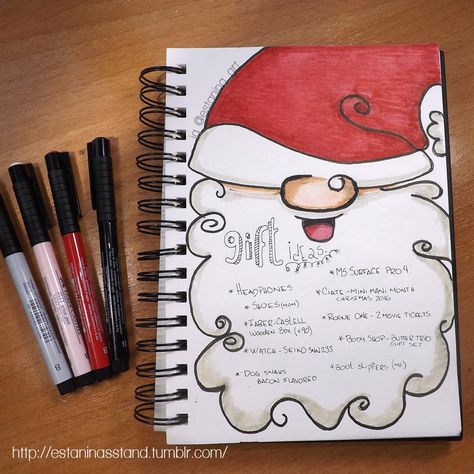 ig @estanina_art
gift ideas
* HEADPHONES
* SHOES (MOM)
* FABER-CASTELL
WOODEN BOX (x90)
* WATCH - SEIKO SNW23S
* DOG SNAKS
BACON FLAVORED.
* MS SURFACE PRO 4.
* CIATE - MINI MANI MONTH
CHRISTMAS 2016
* ROGUE ONE - 2 MOVIE TICKETS
* BODY SHOP - BUTTER TRIO
GIFT SET
* BOOT SLIPPERS (ME)
http://estaninasstand.tumblr.com/